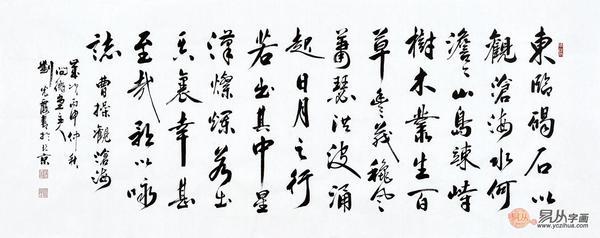 東臨碣石以
觀滄海水何
澹々山島竦峙
樹木叢生百
草豐茂秋風
蕭瑟洪波涌
起日月之行
若出其中星
漢燦爛若出
其裏幸甚
至哉歌以咏
誌 曹操觀滄海
歲次丙申仲秋
主人
劉光霞書於北京
易从字画
www.yczihua.com